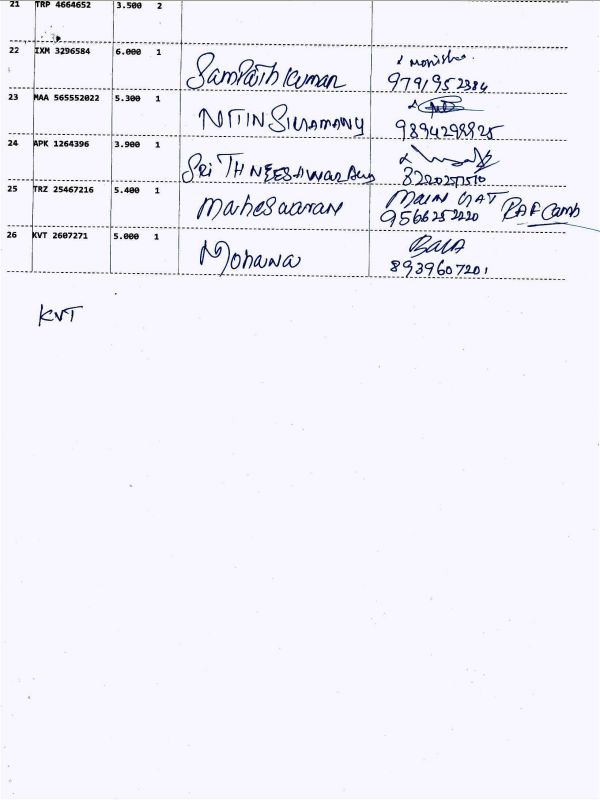 21 TRP 4664652 3.500 2
22 IXM 3296584 6.000 1 Sampath Kumar Monisha
9791952384
23 MAA 565552022 5.300 1
9894298825
24 APK 1264396 3.900 1
8220257510
25 TRZ 25467216 5.400 1 Maheswaran MAIN GAT
9566252220 RAF Camb
26 KVT 2607271 5.000 1 Mohana Bala
8939607201
KVT